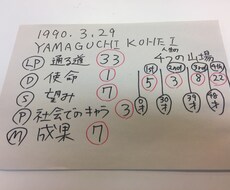 1990.3.29
YAMAGUCHI KOHEI
LP 通る道 33
D 使命 1
S 望み 7
P 社会でのキャラ 3
M 成果 7
人生の
4つの山場
1st 2nd 3rd 4th
5 3 8 22
0才